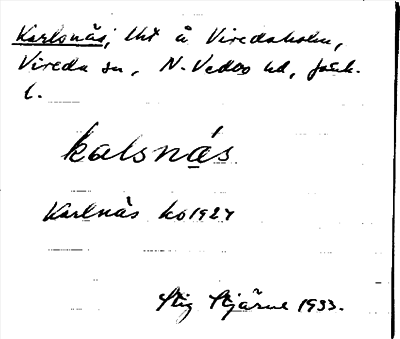 Karlsnäs, lht å Viredaholm,
Vireda sn, N. Vedbo hd, Jönk.
l.
kalsnás
Karlnäs ko 1927
Stig Stjärne 1933.